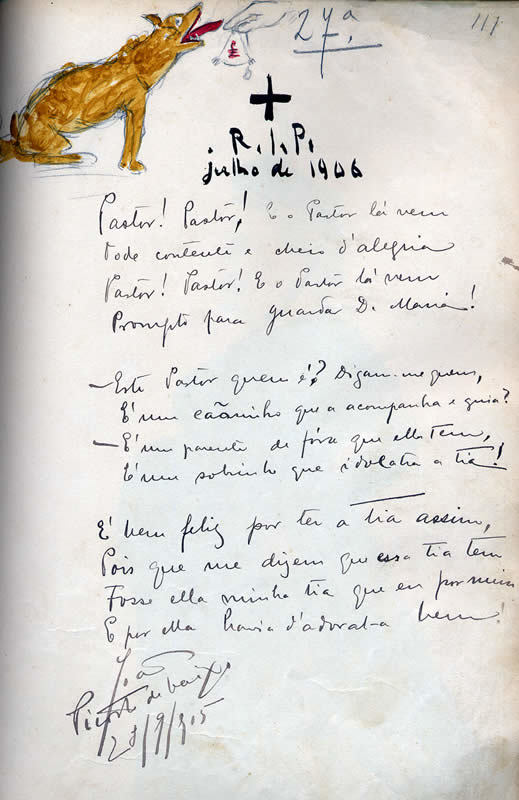 27ª
117
R.I.P.
julho de 1906
Pastor! Pastor! E o Pastor lá vem
Todo contente e cheio d'alegria
Pastor! Pastor! E o Pastor lá vem
Prompto para guardar D. Maria!
— Este Pastor quem é? Digam-me quem,
É um cãosinho que a acompanha e guia?
— É um parente de fóra que ella tem,
É um sobrinho que idolatra a tia!
É bem feliz por ter a tia assim,
Pois que me dizem que essa tia tem
Fosse ella minha tia que eu por mim
E por ella havia d'adoral-a bem!
João
de
28/9/905